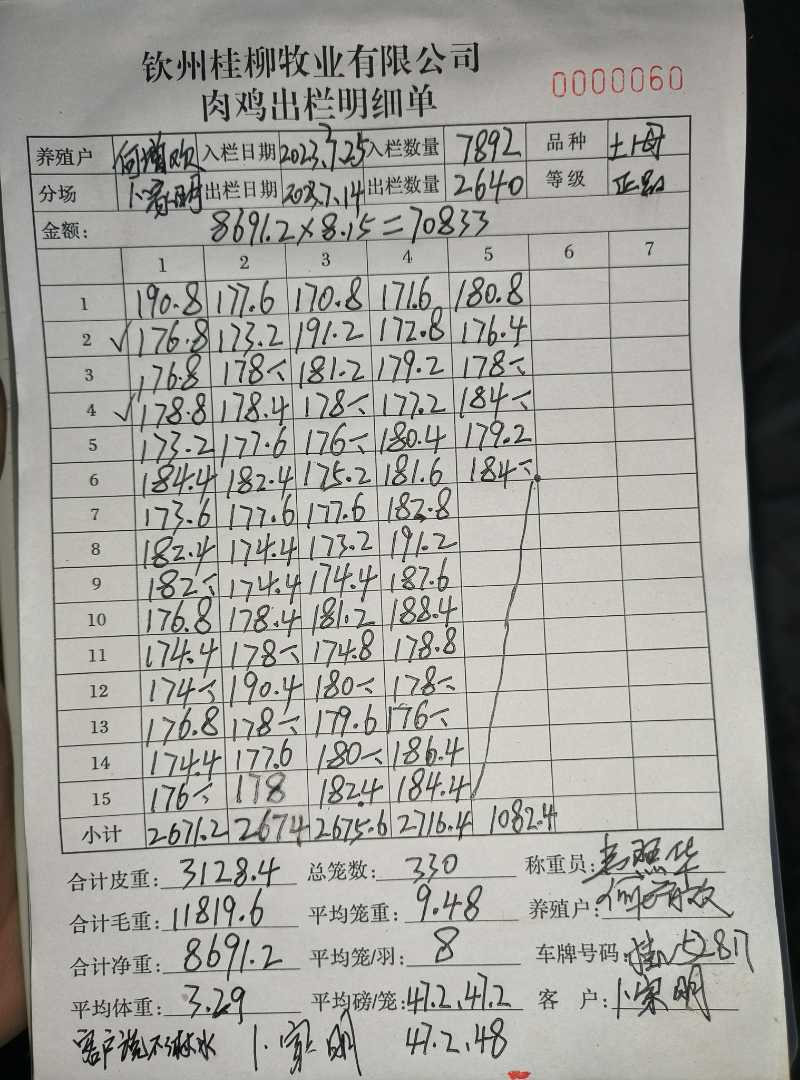 钦州桂柳牧业有限公司
0000060
肉鸡出栏明细单
养殖户 何增欢 入栏日期 2023.7.25 入栏数量 7892 品种 土1母
分场 出栏日期 出栏数量 2640 等级 正品
金额: 8691.2×8.15=70833
1 2 3 4 5 6 7
1 190.8 177.6 170.8 171.6 180.8
2 √176.8 173.2 191.2 172.8 176.4
3 176.8 178 181.2 179.2 178
4 √178.8 178.4 178 177.2 184
5 173.2 177.6 176 180.4 179.2
6 184.4 182.4 175.2 181.6 184
7 173.6 177.6 177.6 182.8
8 182.4 174.4 173.2 191.2
9 182 174.4 174.4 187.6
10 176.8 178.4 181.2 188.4
11 174.4 178 174.8 178.8
12 174 190.4 180 178
13 176.8 178 179.6 176
14 174.4 177.6 180 186.4
15 176 178 182.4 184.4
小计 2671.2 2674 2675.6 2716.4 1082.4
合计皮重: 3128.4 总笼数: 330 称重员:
合计毛重: 11819.6 平均笼重: 9.48 养殖户:
合计净重: 8691.2 平均笼/羽: 8 车牌号码: 52817
平均体重: 3.29 平均磅/笼: 47.2、47.2 客户:
客户说不淋水 47.2、48